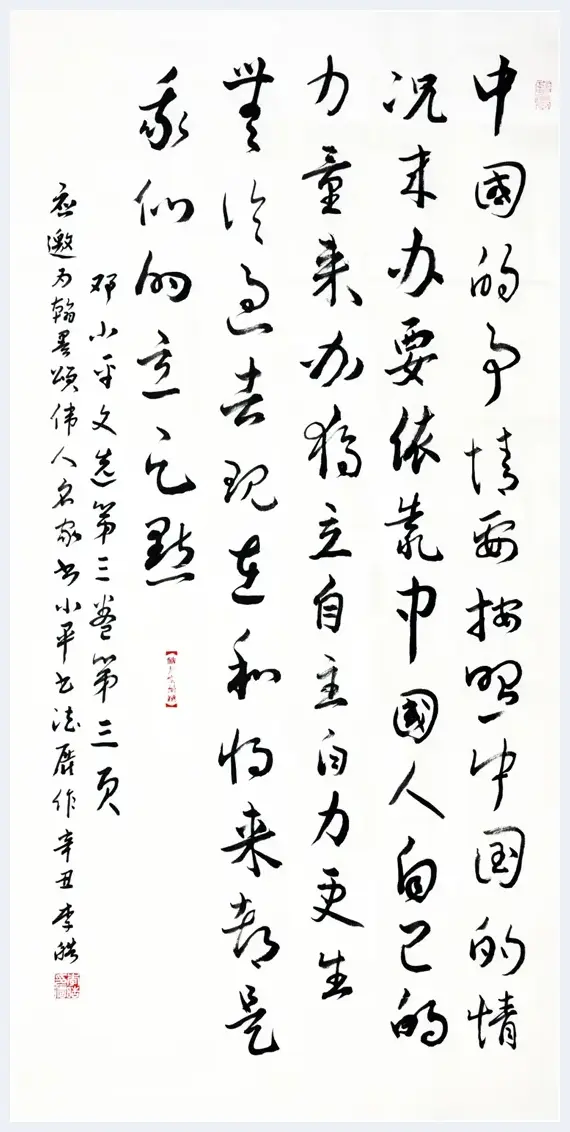 中國的事情要按照中国的情
况来办要依靠中國人自己的
力量来办獨立自主自力更生
無论過去现在和将来都是
我们的立足點
邓小平文选第三卷第三页
应邀为翰墨頌伟人名家书小平书法展作辛丑李皓